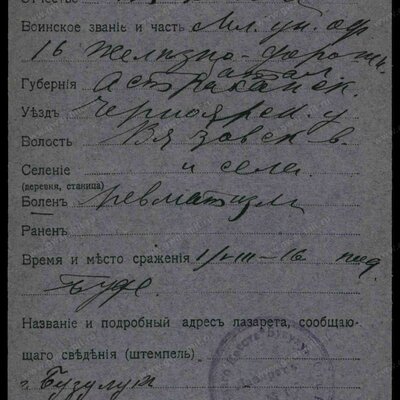 Отчество
Воинское званіе и часть Мл. ун. оф
16 Желѣзно-дорож.
батал.
Губернія Астраханск.
Уѣздъ Черноярск. у
Волость Вязовск в.
Селеніе и села
(деревня, станица)
Боленъ ревматизм
Раненъ
Время и мѣсто сраженія 1/VIII–16
Названіе и подробный адресъ лазарета, сообщаю-
щаго свѣдѣнія (штемпель)
г. Бузулук